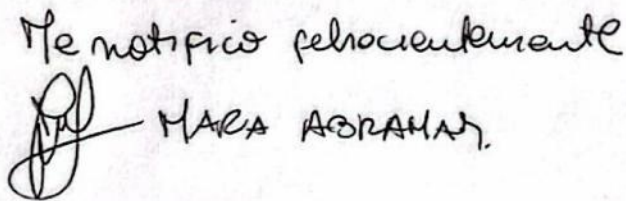 Me notifico fehacientemente
MARA ABRAHAM.